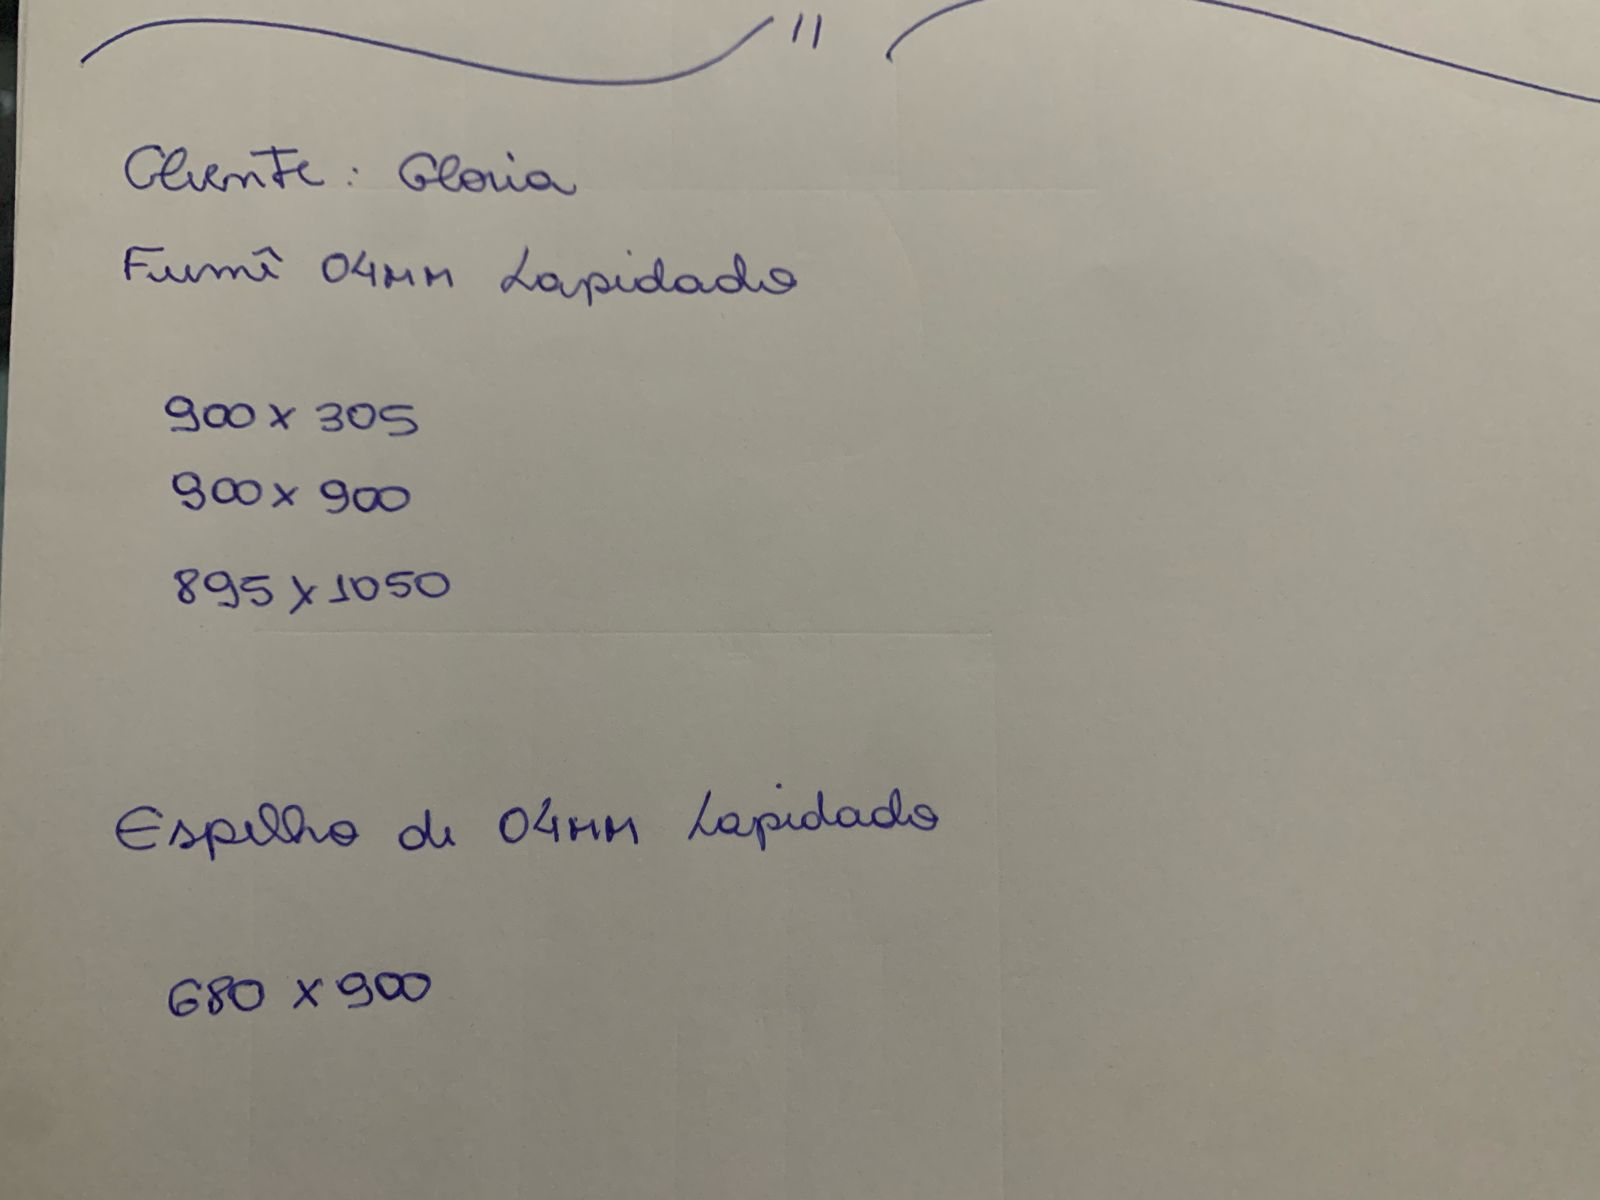 11
Cliente: Gloria
Fumê 04MM Lapidado
900 x 305
900 x 900
895 x 1050
Espelho de 04MM Lapidado
680 x 900